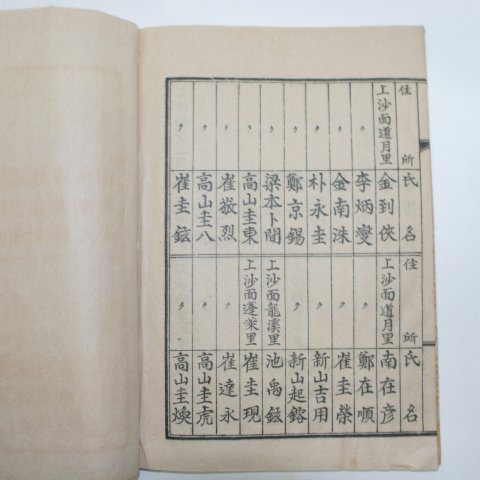 住所 氏名
上沙面道月里 金到俠
〃 李炳燮
〃 金南洙
〃 朴永圭
〃 鄭京錫
〃 梁本卜間
〃 高山圭東
〃 崔敬烈
〃 高山圭八
〃 崔圭鉉
住所 氏名
上沙面道月里 南在彦
〃 鄭在順
〃 崔圭榮
〃 新山吉用
〃 新山起鎔
上沙面龍溪里 池禹鉉
上沙面蓬萊里 崔圭現
〃 崔達永
〃 高山圭虎
〃 高山圭煥